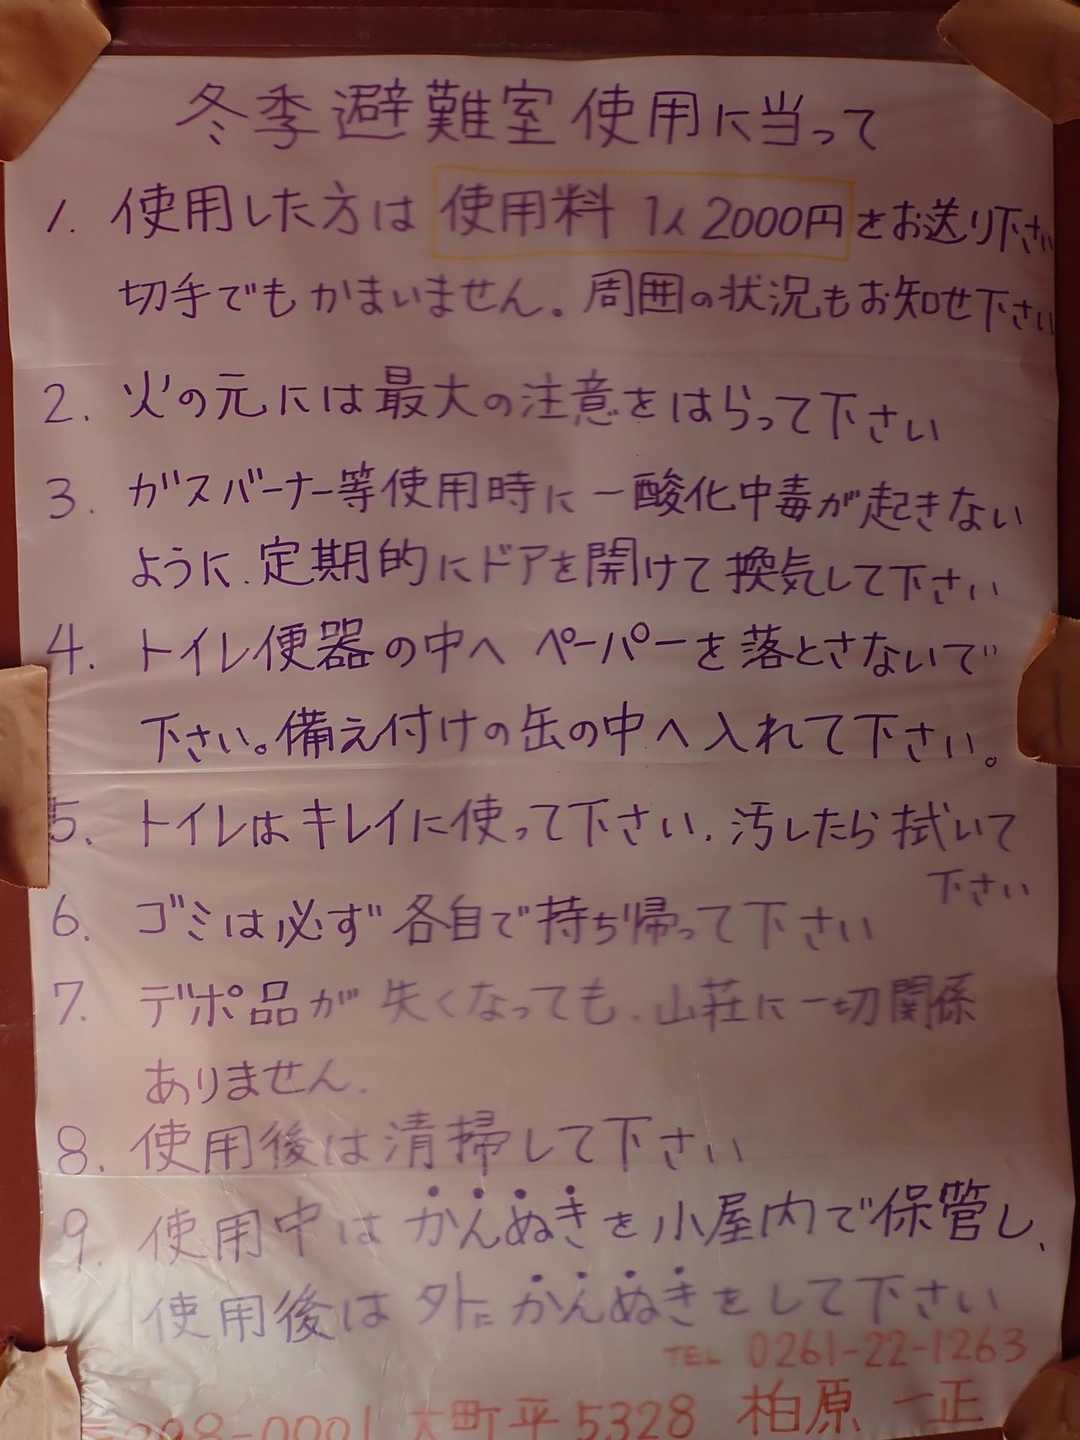 冬季避難室使用に当って
1. 使用した方は 使用料 1人 2000円をお送り下さい
切手でもかまいません。周囲の状況もお知せ下さい
2. 火の元には最大の注意をはらって下さい
3. ガスバーナー等使用時に一酸化中毒が起きない
ように、定期的にドアを開けて換気して下さい
4. トイレ便器の中へ ペーパーを落とさないで
下さい。備え付けの缶の中へ入れて下さい。
5. トイレはキレイに使って下さい、汚したら拭いて
下さい
6. ゴミは必ず各自で持ち帰って下さい
7. デポ品が失くなっても、山荘に一切関係
ありません.
8. 使用後は清掃して下さい
9. 使用中はかんぬきを小屋内で保管し、
使用後は外にかんぬきをして下さい
TEL 0261-22-1263
〒398-0001 大町平5328 柏原 一正